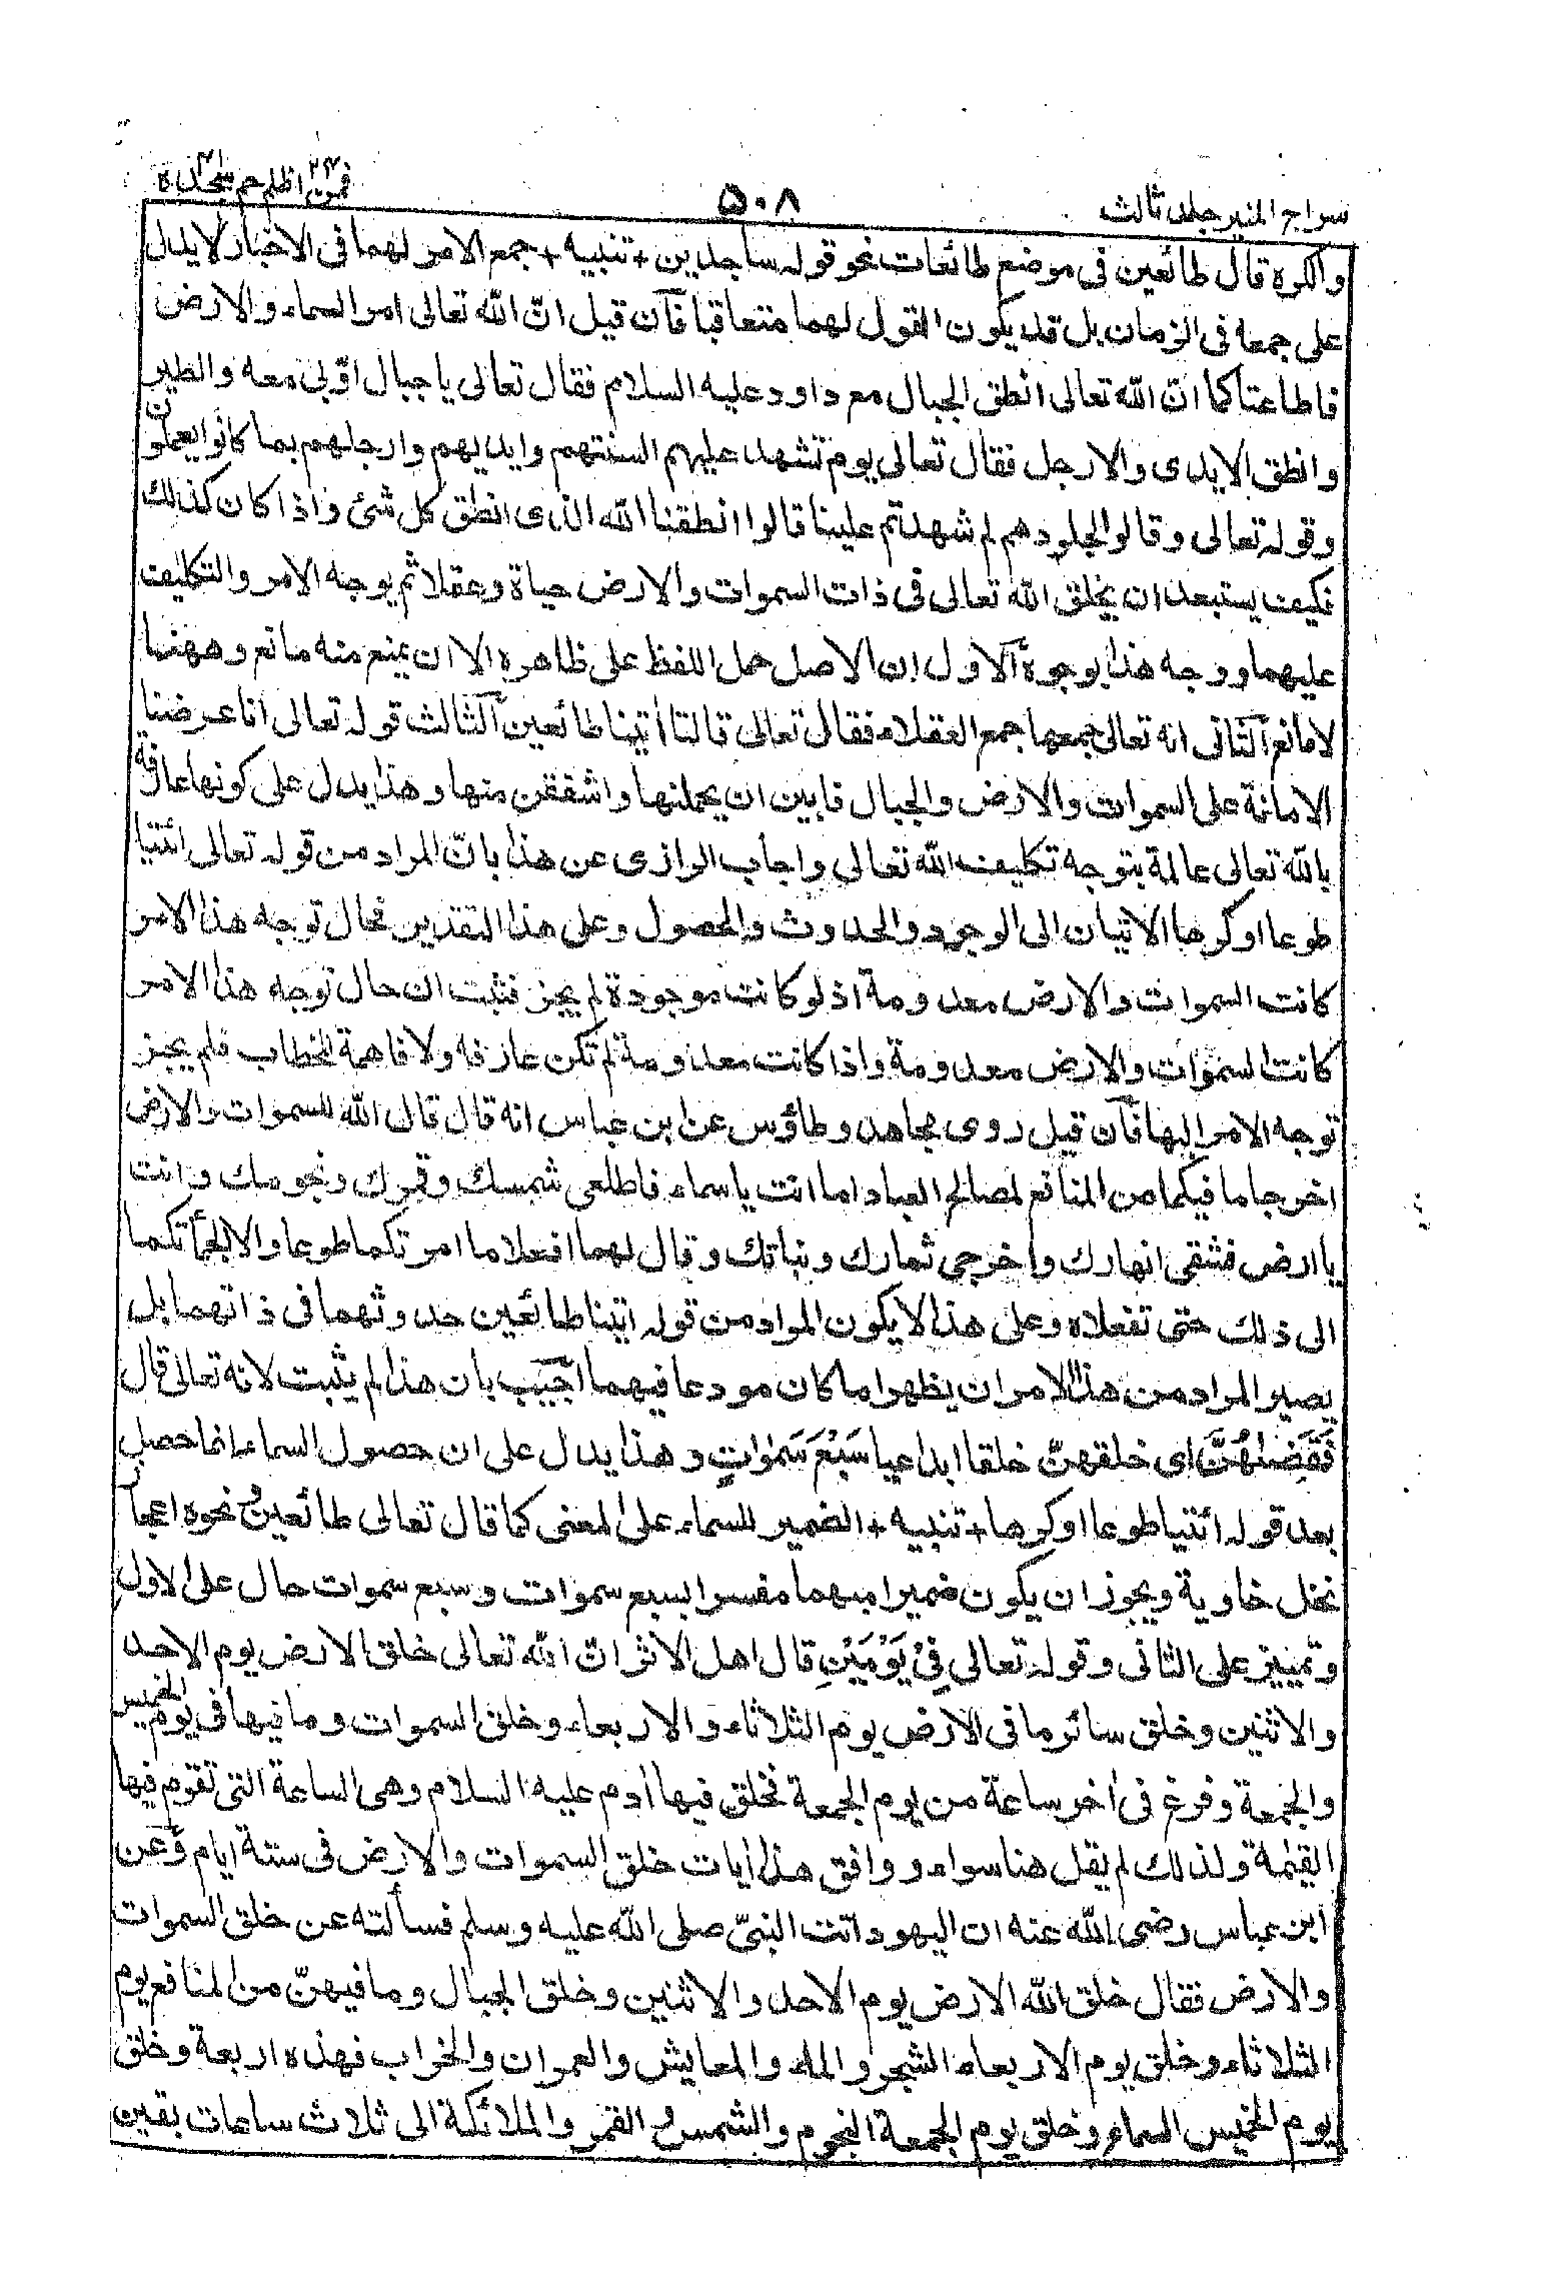 سراج المنير جلد ثالث
٥٠٨
فمن اظلم ٢٤ حم سجدة ٤١
والكره قال طائعين فى موضع طائعات نحو قوله ساجدين + تنبيه + جمع الامر لهما فى الاخبار لا يدل
على جمعه فى الزمان بل قد يكون القول لهما متعاقبا فآن قيل انّ الله تعالى امر السماء والارض
فاطاعتا كما انّ الله تعالى انطق الجبال مع داود عليه السلام فقال تعالى يا جبال اوّبى معه والطير
وانطق الايدى والارجل فقال تعالى يوم تشهد عليهم السنتهم وايديهم وارجلهم بما كانوا يعملون
وقوله تعالى وقالوا لجلودهم لم شهدتم علينا قالوا انطقنا الله الذى انطق كل شئ واذا كان كذلك
فكيف يستبعد ان يخلق الله تعالى فى ذات السموات والارض حياة وعقلا ثم يوجه الامر والتكليف
عليهما ووجه هذا بوجوه آلاول ان الاصل حمل اللفظ على ظاهره الا ان يمنع منه مانع وههنا
لا مانع آلثانى انه تعالى جمعها جمع العقلاء فقال تعالى قالتا أتينا طائعين آلثالث قوله تعالى انا عرضنا
الامانة على السموات والارض والجبال فابين ان يحملنها واشفقن منها وهذا يدل على كونها عارفة
بالله تعالى عالمة بتوجه تكليف الله تعالى واجاب الرازى عن هذا بانّ المراد من قوله تعالى ائتيا
طوعا او كرها الاتيان الى الوجود والحدوث والحصول وعلى هذا التقدير فحال توجه هذا الامر
كانت السموات والارض معدومة اذ لو كانت موجودة لم يجز فثبت ان حال توجه هذا الامر
كانت السموات والارض معدومة واذا كانت معدومة لم تكن عارفه ولا فاهمة للخطاب فلم يجز
توجه الامر اليها فآن قيل روى مجاهد وطاؤس عن ابن عباس انه قال قال الله للسموات والارض
اخرجا ما فيكما من المنافع لمصالح العباد اما انت يا سماء فاطلعى شمسك وقمرك ونجومك وانت
يا ارض فشقى انهارك واخرجى ثمارك ونباتك وقال لهما افعلا ما امرتكما طوعا والا الجأتكما
الى ذلك حتى تفعلاه وعلى هذا لا يكون المراد من قوله اتينا طائعين حدوثهما فى ذاتهما بل
يصير المراد من هذا الامر ان يظهرا ما كان مودعا فيهما آجيب بأن هذا لم يثبت لانه تعالى قال
فَقَضٰهُنَّ اى خلقهنّ خلقا ابداعيا سَبْعَ سَمٰوٰتٍ وهذا يدل على ان حصول السماء انما حصل
بعد قوله ائتيا طوعا او كرها + تنبيه + الضمير للسماء على المعنى كما قال تعالى طائعين ونحوه اعجاز
نخل خاوية ويجوز ان يكون ضميرا مبهما مفسرا بسبع سموات وسبع سموات حال على الاول
وتمييز على الثانى وقوله تعالى فِىْ يَوْمَيْنِ قال اهل الاثر انّ الله تعالى خلق الارض يوم الاحد
والاثنين وخلق سائر ما فى الارض يوم الثلاثاء والاربعاء وخلق السموات وما فيها فى يوم الخميس
والجمعة وفرغ فى أخر ساعة من يوم الجمعة فخلق فيها أدم عليه السلام وهى الساعة التى تقوم فيها
القيٰمة ولذلك لم يقل هنا سواء ووافق هذا أيات خلق السموات والارض فى ستة ايام وعن
ابن عباس رضى الله عنه ان اليهود اتت النبىّ صلى الله عليه وسلم فسألته عن خلق السموات
والارض فقال خلق الله الارض يوم الاحد والاثنين وخلق الجبال وما فيهنّ من المنافع يوم
الثلاثاء وخلق يوم الاربعاء الشجر والماء والمعايش والعمران والخراب فهذه اربعة وخلق
يوم الخميس السماء وخلق يوم الجمعة النجوم والشمس والقمر والملائكة الى ثلاث ساعات بقين